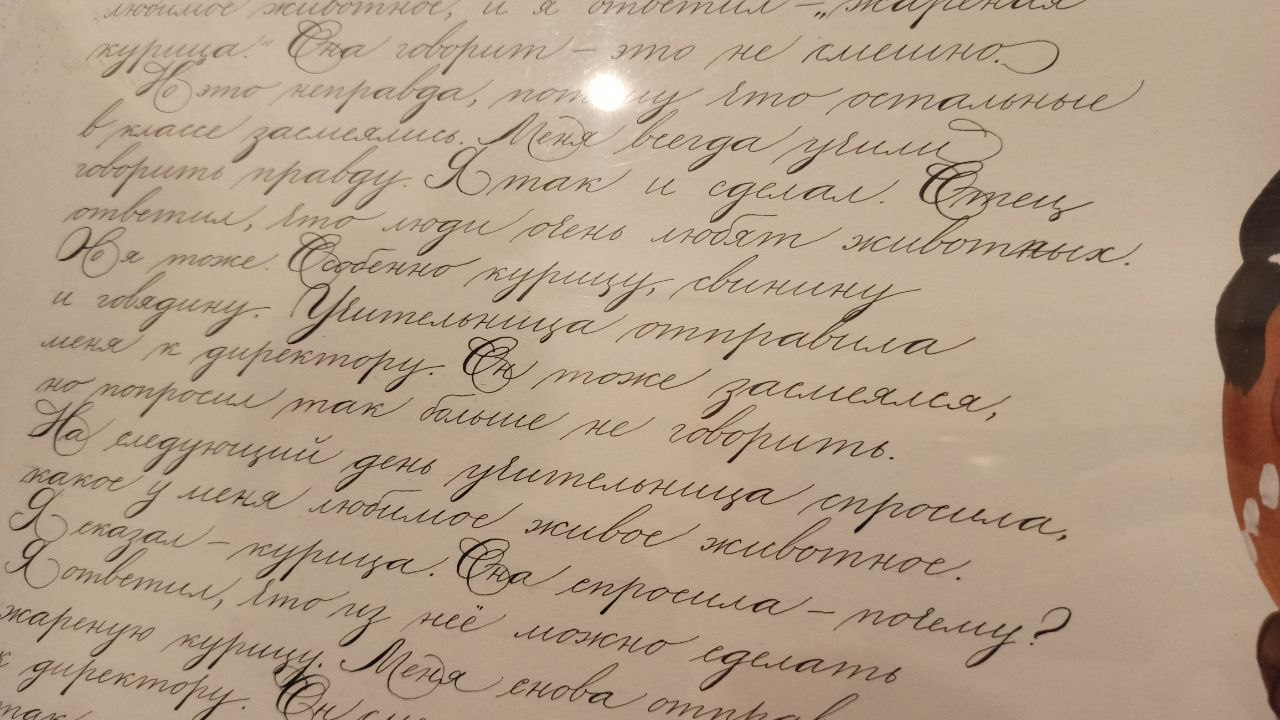 любимое животное, и я ответил – „жареная
курица.“ Она говорит – это не смешно.
Но это неправда, потому что остальные
в классе засмеялись. Меня всегда учили
говорить правду. Я так и сделал. Отец
ответил, что люди очень любят животных.
Я тоже. Особенно курицу, свинину
и говядину. Учительница отправила
меня к директору. Он тоже засмеялся,
но попросил так больше не говорить.
На следующий день учительница спросила,
какое у меня любимое живое животное.
Я сказал – курица. Она спросила – почему?
Я ответил, что из неё можно сделать
жареную курицу. Меня снова
к директору. Он
так